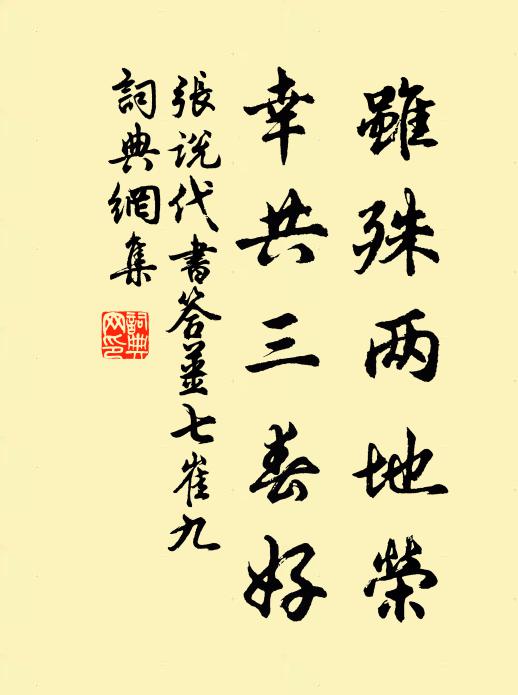 雖殊两地榮
幸共三春好
張说代書答姜七崔九
詞典網集
詞典网印